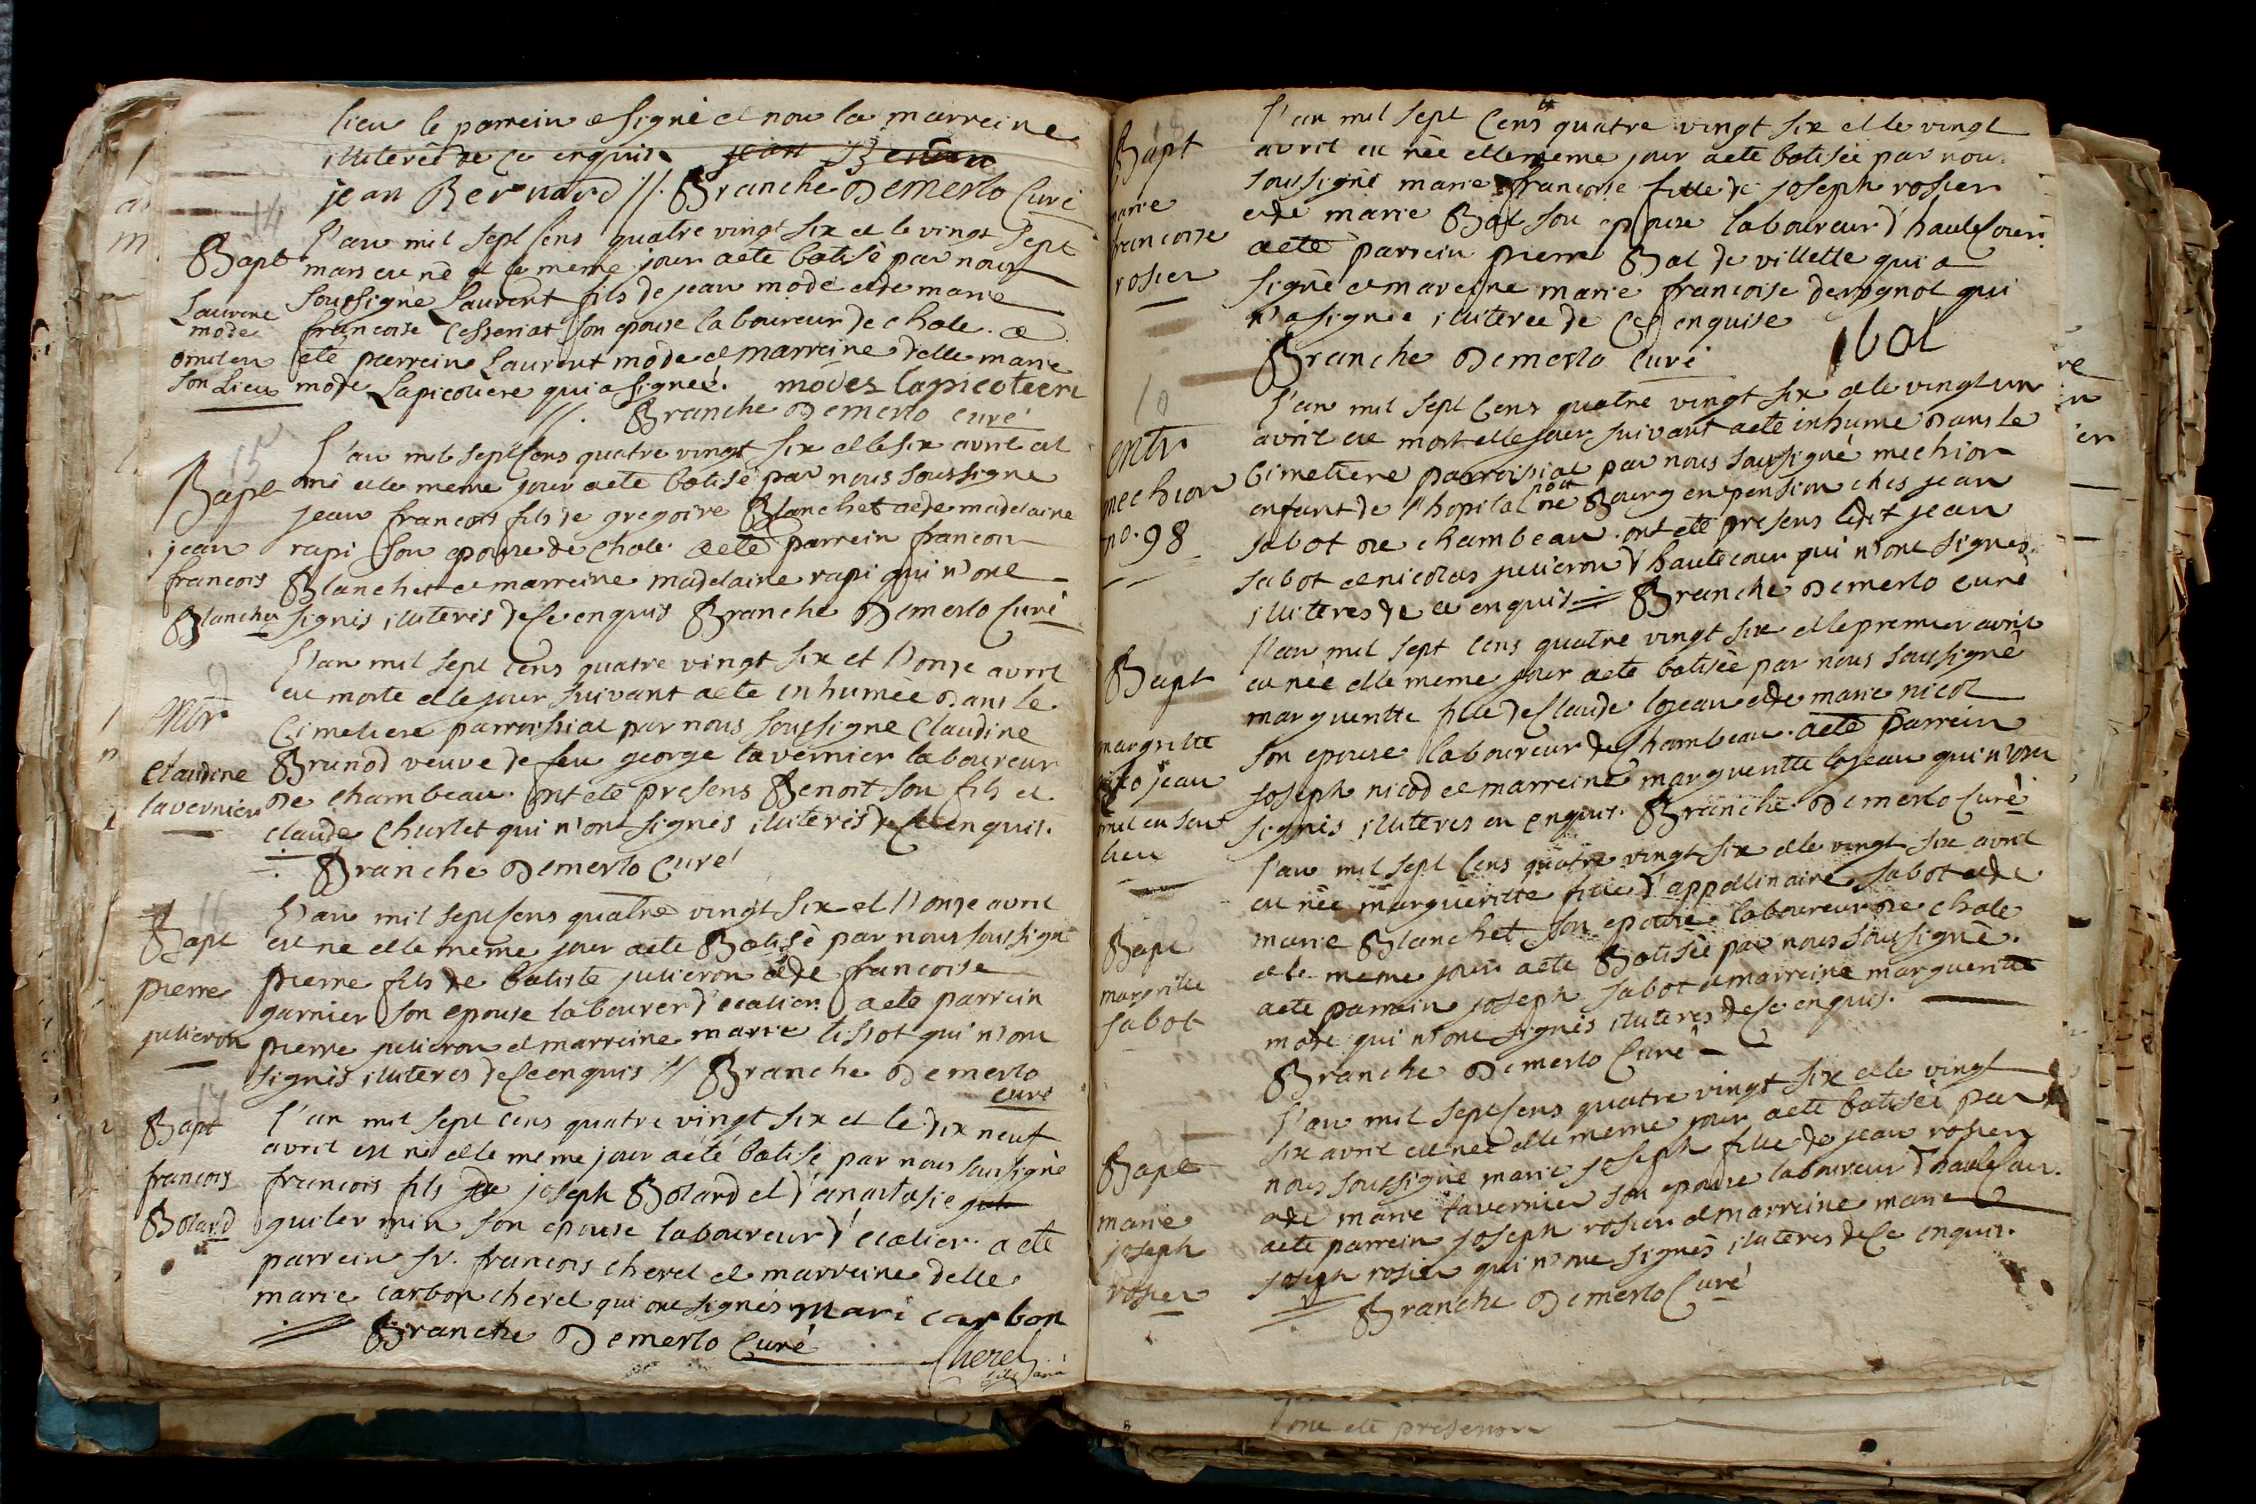 lieu le parrein a signé et non la marreine
illiterée de ce enquise jean Bernar
jean Bernard //. Branche Demerlo Curé
14
Bapt
Laurent
mode
omil en
son Lieu
L'an mil sept Cens quatre vingt six et le vingt sept
mars est né et le meme jour a eté batisé par nous
soussigné Laurent fils de jean mode et de marie
francoise Cesseriat son epouse laboureur de chole. a
eté parrein Laurent mode et marreine delle marie
mode Lapicotiere qui a signeé. modes lapicotiere
//. Branche Demerlo curé
15
Bapt
jean
francois
Blanchet
L'an mil sept Cens quatre vingt six et le six avril est
né et le meme jour a eté batisé par nous soussigné
jean francois fils de gregoire Blanchet et de madelaine
rapi son epouse de chole. a eté parrein francois
Blanchet et marreine madelaine rapi qui n'ont
signés illiterés de ce enquis Branche Demerlo Curé
9
entr.
Claudine
tavernier
L'an mil sept cens quatre vingt six et l'onze avril
est morte et le jour suivant a eté inhumeé Dans le
Cimetiere parroissial par nous soussigné Claudine
Brunod veuve de feu george tavernier laboureur
De chambeau. ont eté presens Benoit son fils et
claude Charlet qui n'ont signés illiterés de ce enquis.
Branche Demerlo Curé
16
Bapt
pierre
julieron
L'an mil sept Cens quatre vingt six et l'onze avril
est né et le meme jour a eté Batisé par nous soussigné
pierre fils de batiste julieron et de francoise
garnier son epouse labourer d'ecalier. a eté parrein
pierre julieron et marreine marie tissot qui n'ont
signés illiterés de ce enquis // Branche Demerlo
curé
17
Bapt
francois
Bolard
L'an mil sept cens quatre vingt six et le dix neuf
avril est né et le meme jour a eté batisé par nous soussigné
francois fils de joseph Bolard et d'anastasie gul
guilermin son epouse laboureur d'ecalier. a eté
parrein sr. francois cherel et marreine delle
marie carbon cherel qui ont signés mari carbon
Branche Demerlo Curé
Cherel
18
Bapt
marie
francoise
rosier
L'an mil sept Cens quatre vingt six et le vingt
avril est née et le meme jour a eté batisée par nou
soussigné marie francoise fille de joseph rosier
et de marie Bal son epouse laboureur d'hautecour.
a eté parrein pierre Bal de villette qui a
signé et mareine marie francoise derognat qui
n'a signeé illiterée de ce enquise
Branche Demerlo curé bal
10
entr.
mechior
no. 98
L'an mil sept Cens quatre vingt six et le vingt un
avril est mort et le jour suivant a eté inhumé Dans le
Cimetiere parroissial par nous soussigné mechior
enfant de l'hopital De Bourg en pension ches jean
sabot De chambeau. ont eté presens ledit jean
sabot et nicolas julieron d'hautecour qui n'ont signés.
illiterés de ce enquis // Branche Demerlo curé
Bapt
margritte
lojean
mil en son
lieu
L'an mil sept cens quatre vingt six et le premier avril
est née et le meme jour a eté batiseé par nous soussigné
margueritte fille de Claude lojean et de marie nicod
son epouse laboureur de Chambeau. a eté parrein
joseph nicod et marreine marguentte lojean qui n'ont
signés illiterés en enquis. Branche Demerlo Curé
Bapt
margritte
sabot
L'an mil sept Cens quatre vingt six et le vingt six avril
est née margueritte fille d'appollinaire sabot et de
marie Blanchet son epouse laboureur De chole
et le meme jour a eté Batisée par nous soussigné.
a eté parrein joseph sabot et marreine marguentte
mode qui n'ont signés illiterés de ce enquis.
Branche Demerlo Curé
Bapt
marie
joseph
rosier
L'an mil sept Cens quatre vingt six et le vingt
six avril est née et le meme jour a eté batiseé par
nous soussigné marie joseph fille de jean rosier
et de marie tavernier son epouse laboureur d'hautecour.
a eté parrein joseph rosier et marreine marie
joseph rosier qui n'ont signés illiterés de ce enquis.
Branche Demerlo Curé
ont eté presens